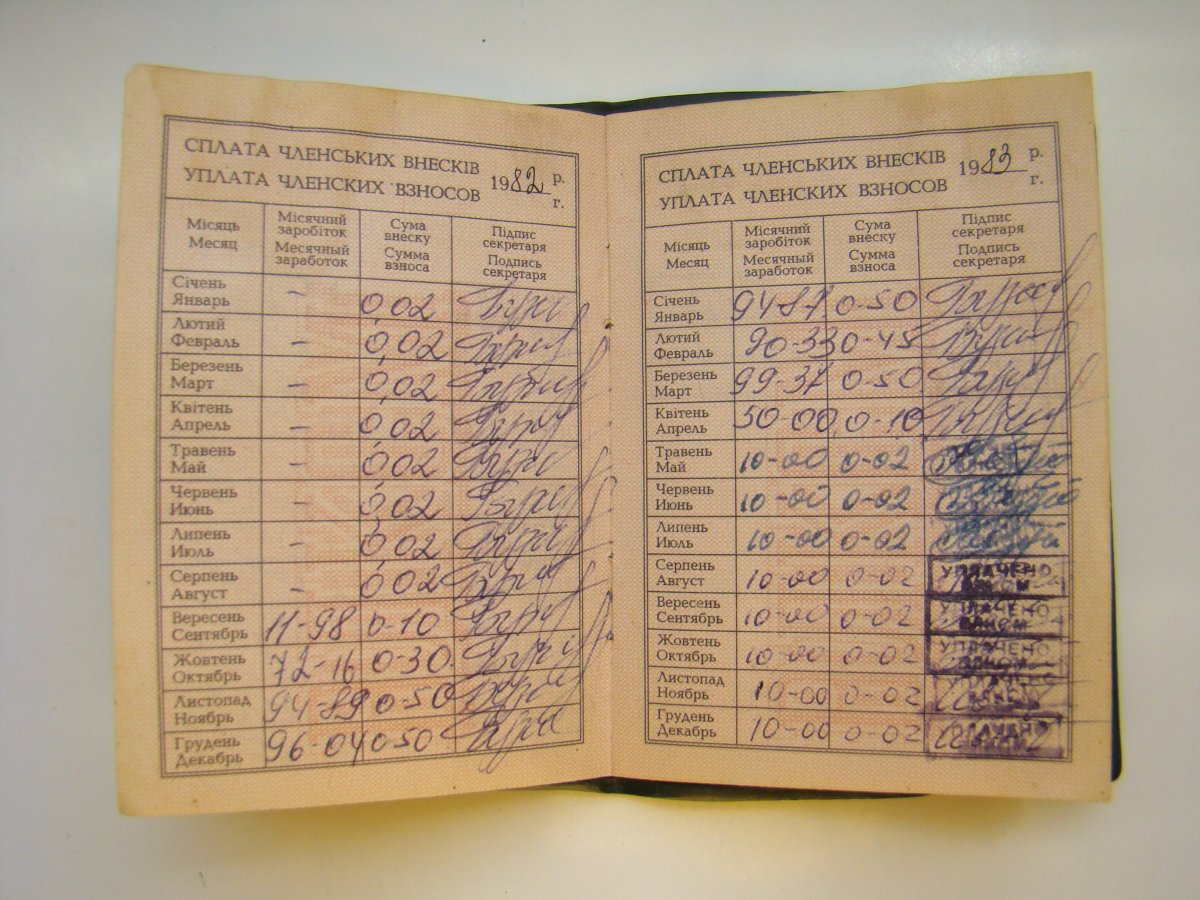 СПЛАТА ЧЛЕНСЬКИХ ВНЕСКІВ 1982 р.
УПЛАТА ЧЛЕНСКИХ ВЗНОСОВ г.
Місяць Місячний заробіток Сума внеску Підпис секретаря
Месяц Месячный заработок Сумма взноса Подпись секретаря
Січень
Январь – 0,02
Лютий
Февраль – 0,02
Березень
Март – 0,02
Квітень
Апрель – 0,02
Травень
Май – 0,02
Червень
Июнь – 0,02
Липень
Июль – 0,02
Серпень
Август – 0,02
Вересень
Сентябрь 11-98 0-10
Жовтень
Октябрь 72-16 0-30
Листопад
Ноябрь 94-89 0-50
Грудень
Декабрь 96-04 0-50
СПЛАТА ЧЛЕНСЬКИХ ВНЕСКІВ 1983 р.
УПЛАТА ЧЛЕНСКИХ ВЗНОСОВ г.
Місяць Місячний заробіток Сума внеску Підпис секретаря
Месяц Месячный заработок Сумма взноса Подпись секретаря
Січень
Январь 94-87 0-50
Лютий
Февраль 90-33 0-45
Березень
Март 99-37 0-50
Квітень
Апрель 50-00 0-10
Травень
Май 10-00 0-02
Червень
Июнь 10-00 0-02
Липень
Июль 10-00 0-02
Серпень УПЛАЧЕНО
Август 10-00 0-02
Вересень УПЛАЧЕНО
Сентябрь 10-00 0-02
Жовтень УПЛАЧЕНО
Октябрь 10-00 0-02
Листопад
Ноябрь 10-00 0-02
Грудень
Декабрь 10-00 0-02